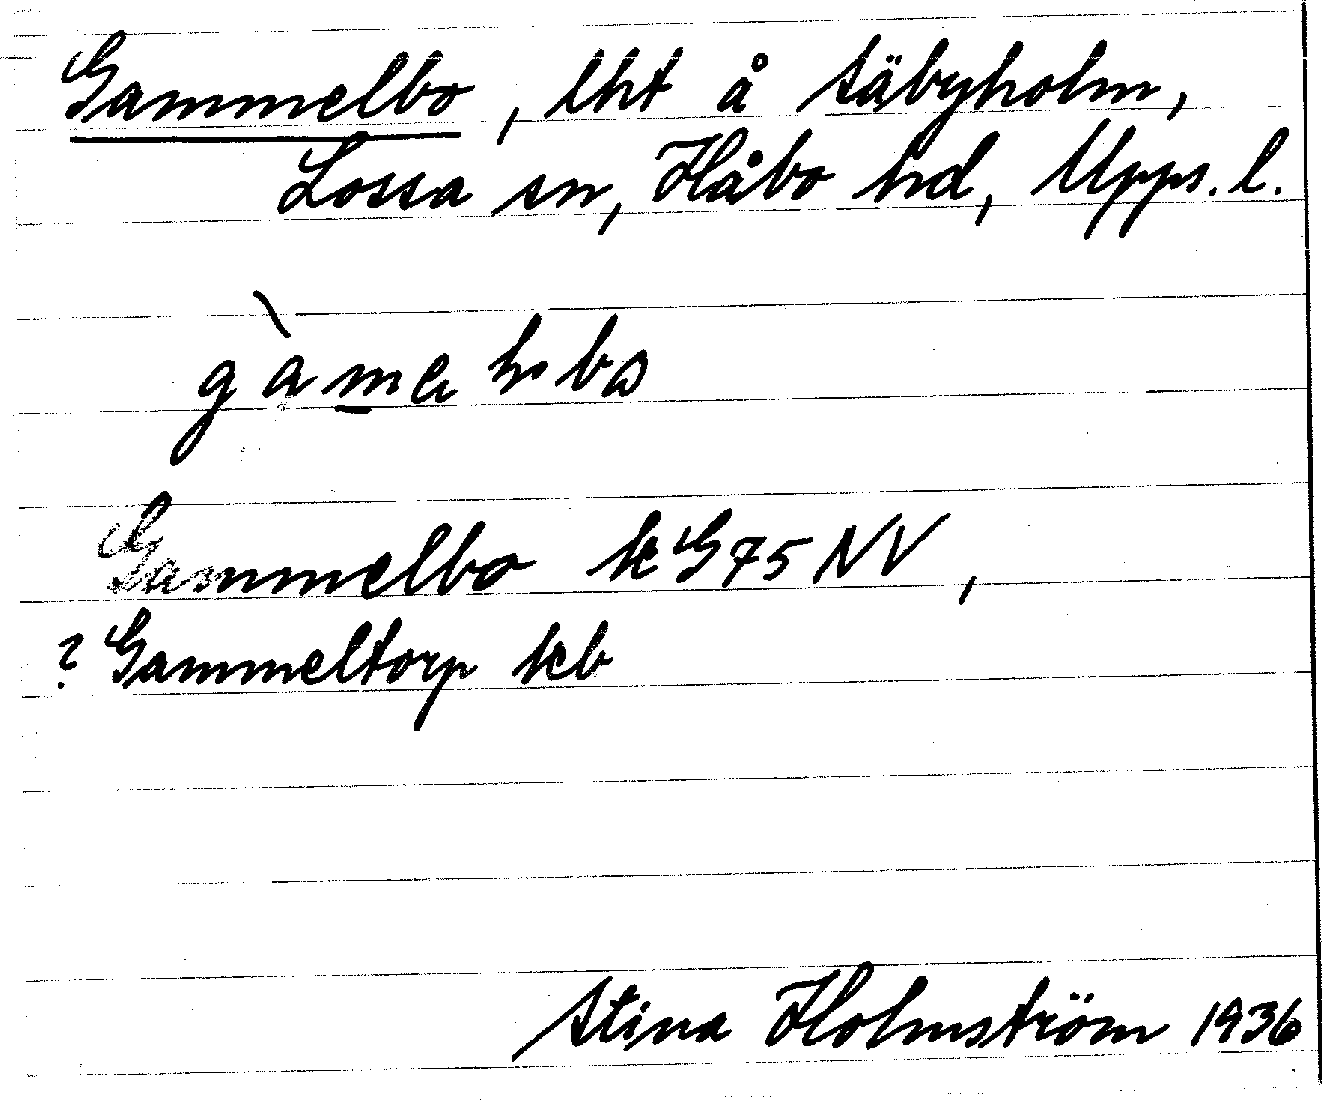 Gammelbo, lht å Säbyholm,
Lossa sn, Håbo hd, Upps. l.
Gammelbo k G75 NV,
? Gammeltorp kb
Stina Holmström 1936